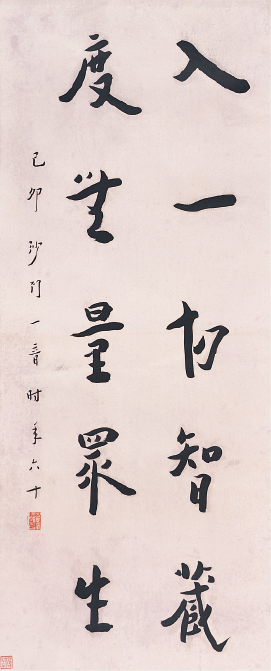 入一切智藏
度無量眾生
己卯沙門一音時年六十